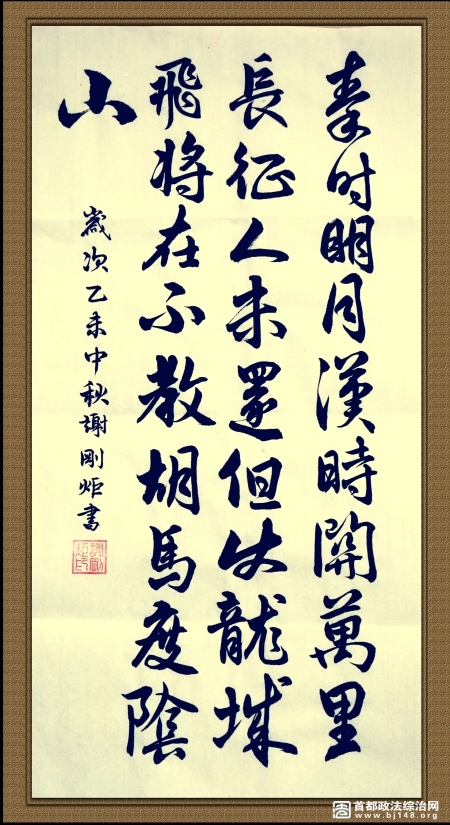 秦时明月漢時関萬里
長征人未還但使龍城
飛将在不教胡馬度陰
山
歲次乙未中秋謝剛炬書
首都政法综治网
www.bj148.org